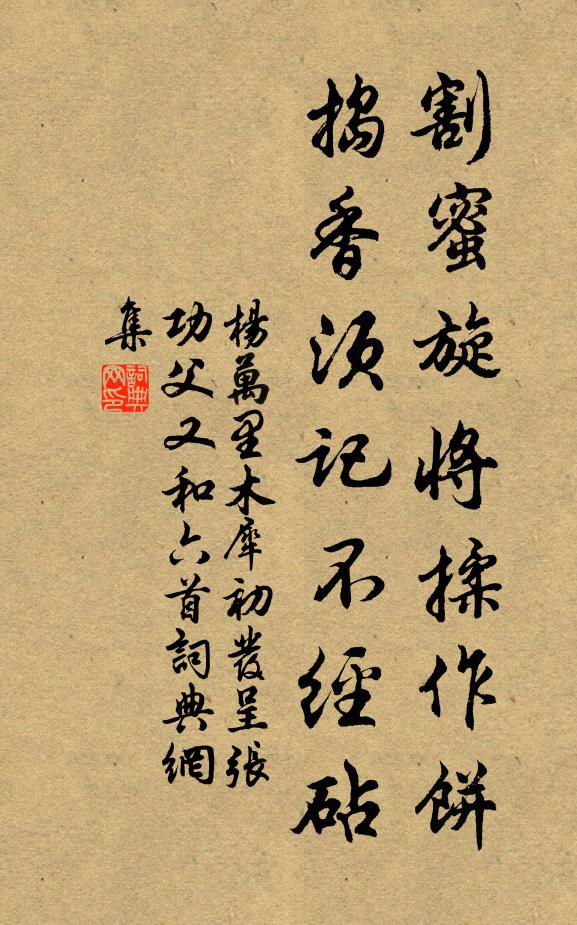 割蜜旋將揉作餅
搗香須記不經砧
楊萬里木犀初發呈張
功父又和六首詞典網
集
詞典
网印